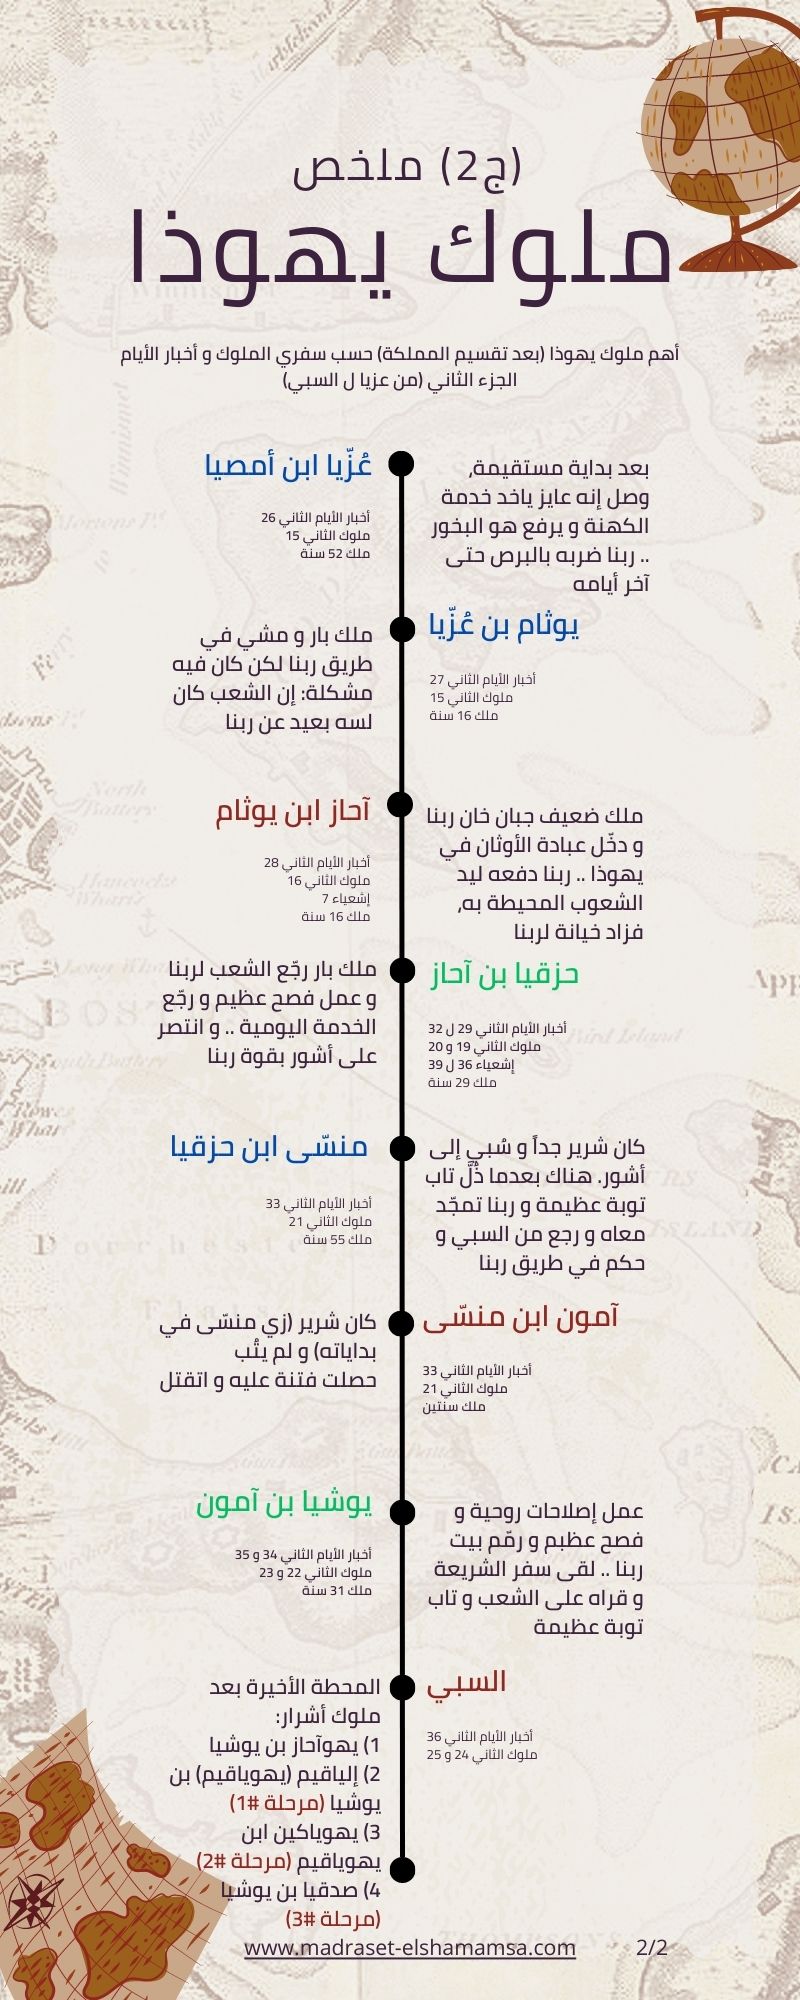 (ج2) ملخص
ملوك يهوذا
أهم ملوك يهوذا (بعد تقسيم المملكة) حسب سفري الملوك و أخبار الأيام
الجزء الثاني (من عزيا ل السبي)
عُزّيا ابن أمصيا
أخبار الأيام الثاني 26
ملوك الثاني 15
ملك 52 سنة
بعد بداية مستقيمة,
وصل إنه عايز ياخد خدمة
الكهنة و يرفع هو البخور
.. ربنا ضربه بالبرص حتى
آخر أيامه
يوثام بن عُزّيا
أخبار الأيام الثاني 27
ملوك الثاني 15
ملك 16 سنة
ملك بار و مشي في
طريق ربنا لكن كان فيه
مشكلة: إن الشعب كان
لسه بعيد عن ربنا
آحاز ابن يوثام
أخبار الأيام الثاني 28
ملوك الثاني 16
إشعياء 7
ملك 16 سنة
ملك ضعيف جبان خان ربنا
و دخّل عبادة الأوثان في
يهوذا .. ربنا دفعه ليد
الشعوب المحيطة به,
فزاد خيانة لربنا
حزقيا بن آحاز
أخبار الأيام الثاني 29 ل 32
ملوك الثاني 19 و 20
إشعياء 36 ل 39
ملك 29 سنة
ملك بار رجّع الشعب لربنا
و عمل فصح عظيم و رجّع
الخدمة اليومية .. و انتصر
على أشور بقوة ربنا
منسّى ابن حزقيا
أخبار الأيام الثاني 33
ملوك الثاني 21
ملك 55 سنة
كان شرير جداً و سُبي إلى
أشور. هناك بعدما ذُلَّ تاب
توبة عظيمة و ربنا تمجّد
معاه و رجع من السبي و
حكم في طريق ربنا
آمون ابن منسّى
أخبار الأيام الثاني 33
ملوك الثاني 21
ملك سنتين
كان شرير (زي منسّى في
بداياته) و لم يتُب
حصلت فتنة عليه و اتقتل
يوشيا بن آمون
أخبار الأيام الثاني 34 و 35
ملوك الثاني 22 و 23
ملك 31 سنة
عمل إصلاحات روحية و
فصح عظبم و رمّم بيت
ربنا .. لقى سفر الشريعة
و قراه على الشعب و تاب
توبة عظيمة
السبي
أخبار الأيام الثاني 36
ملوك الثاني 24 و 25
المحطة الأخيرة بعد
ملوك أشرار:
1) يهوآحاز بن يوشيا
2) إلياقيم (يهوياقيم) بن
يوشيا (مرحلة #1)
3) يهوياكين ابن
يهوياقيم (مرحلة #2)
4) صدقيا بن يوشيا
(مرحلة #3)
www.madraset-elshamamsa.com
2/2